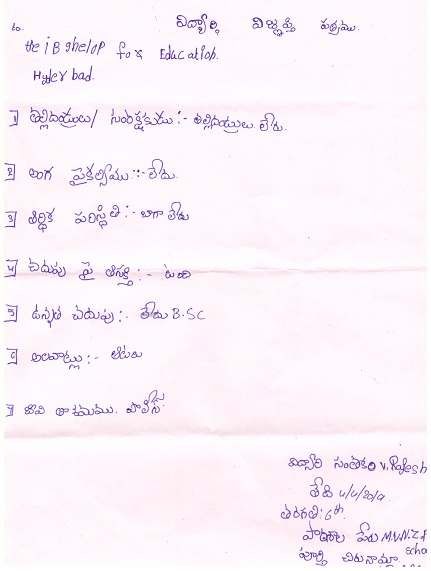 to. విద్యార్థి విజ్ఞప్తి పత్రము.
the iBshelop for Education.
Hyderbad.
1] తల్లిదండ్రులు/ సంరక్షకుడు :- తల్లిదండ్రులు లేరు.
2] అంగ వైకల్యము :- లేదు.
3] ఆర్థిక పరిస్థితి :- బాగా లేదు
4] చదువు పై ఆసక్తి :- ఉంది
5] ఉన్నత చదువు :- B.SC
6] అలవాట్లు :- ఆటలు
7] పోలీస్
విద్యార్థి సంతకం V. Rajesh
తేది 4/4/
తరగతి : 6th.
పాఠశాల పేరు M.V.N.
పూర్తి చిరునామా